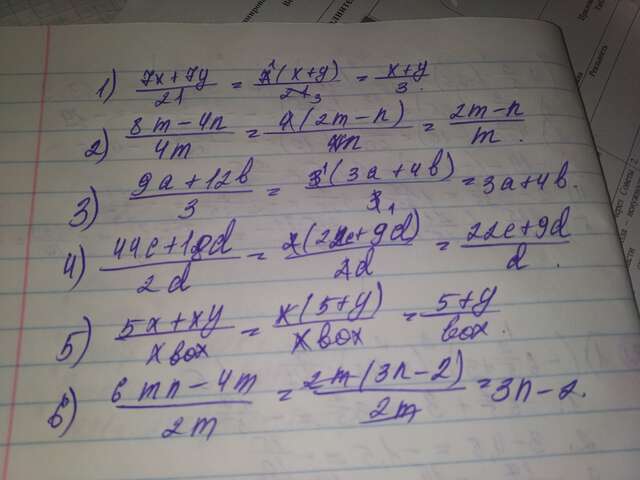 1) 7x+7y/21 = 7¹(x+y)/21₃ = x+y/3.
2) 8m-4n/4m = 4(2m-n)/4m = 2m-n/m.
3) 9a+12b/3 = 3¹(3a+4b)/3₁ = 3a+4b.
4) 44c+18d/2d = 2(22c+9d)/2d = 22c+9d/d.
5) 5x+xy/xbox = x(5+y)/xbox = 5+y/box.
6) 6mn-4m/2m = 2m(3n-2)/2m = 3n-2.